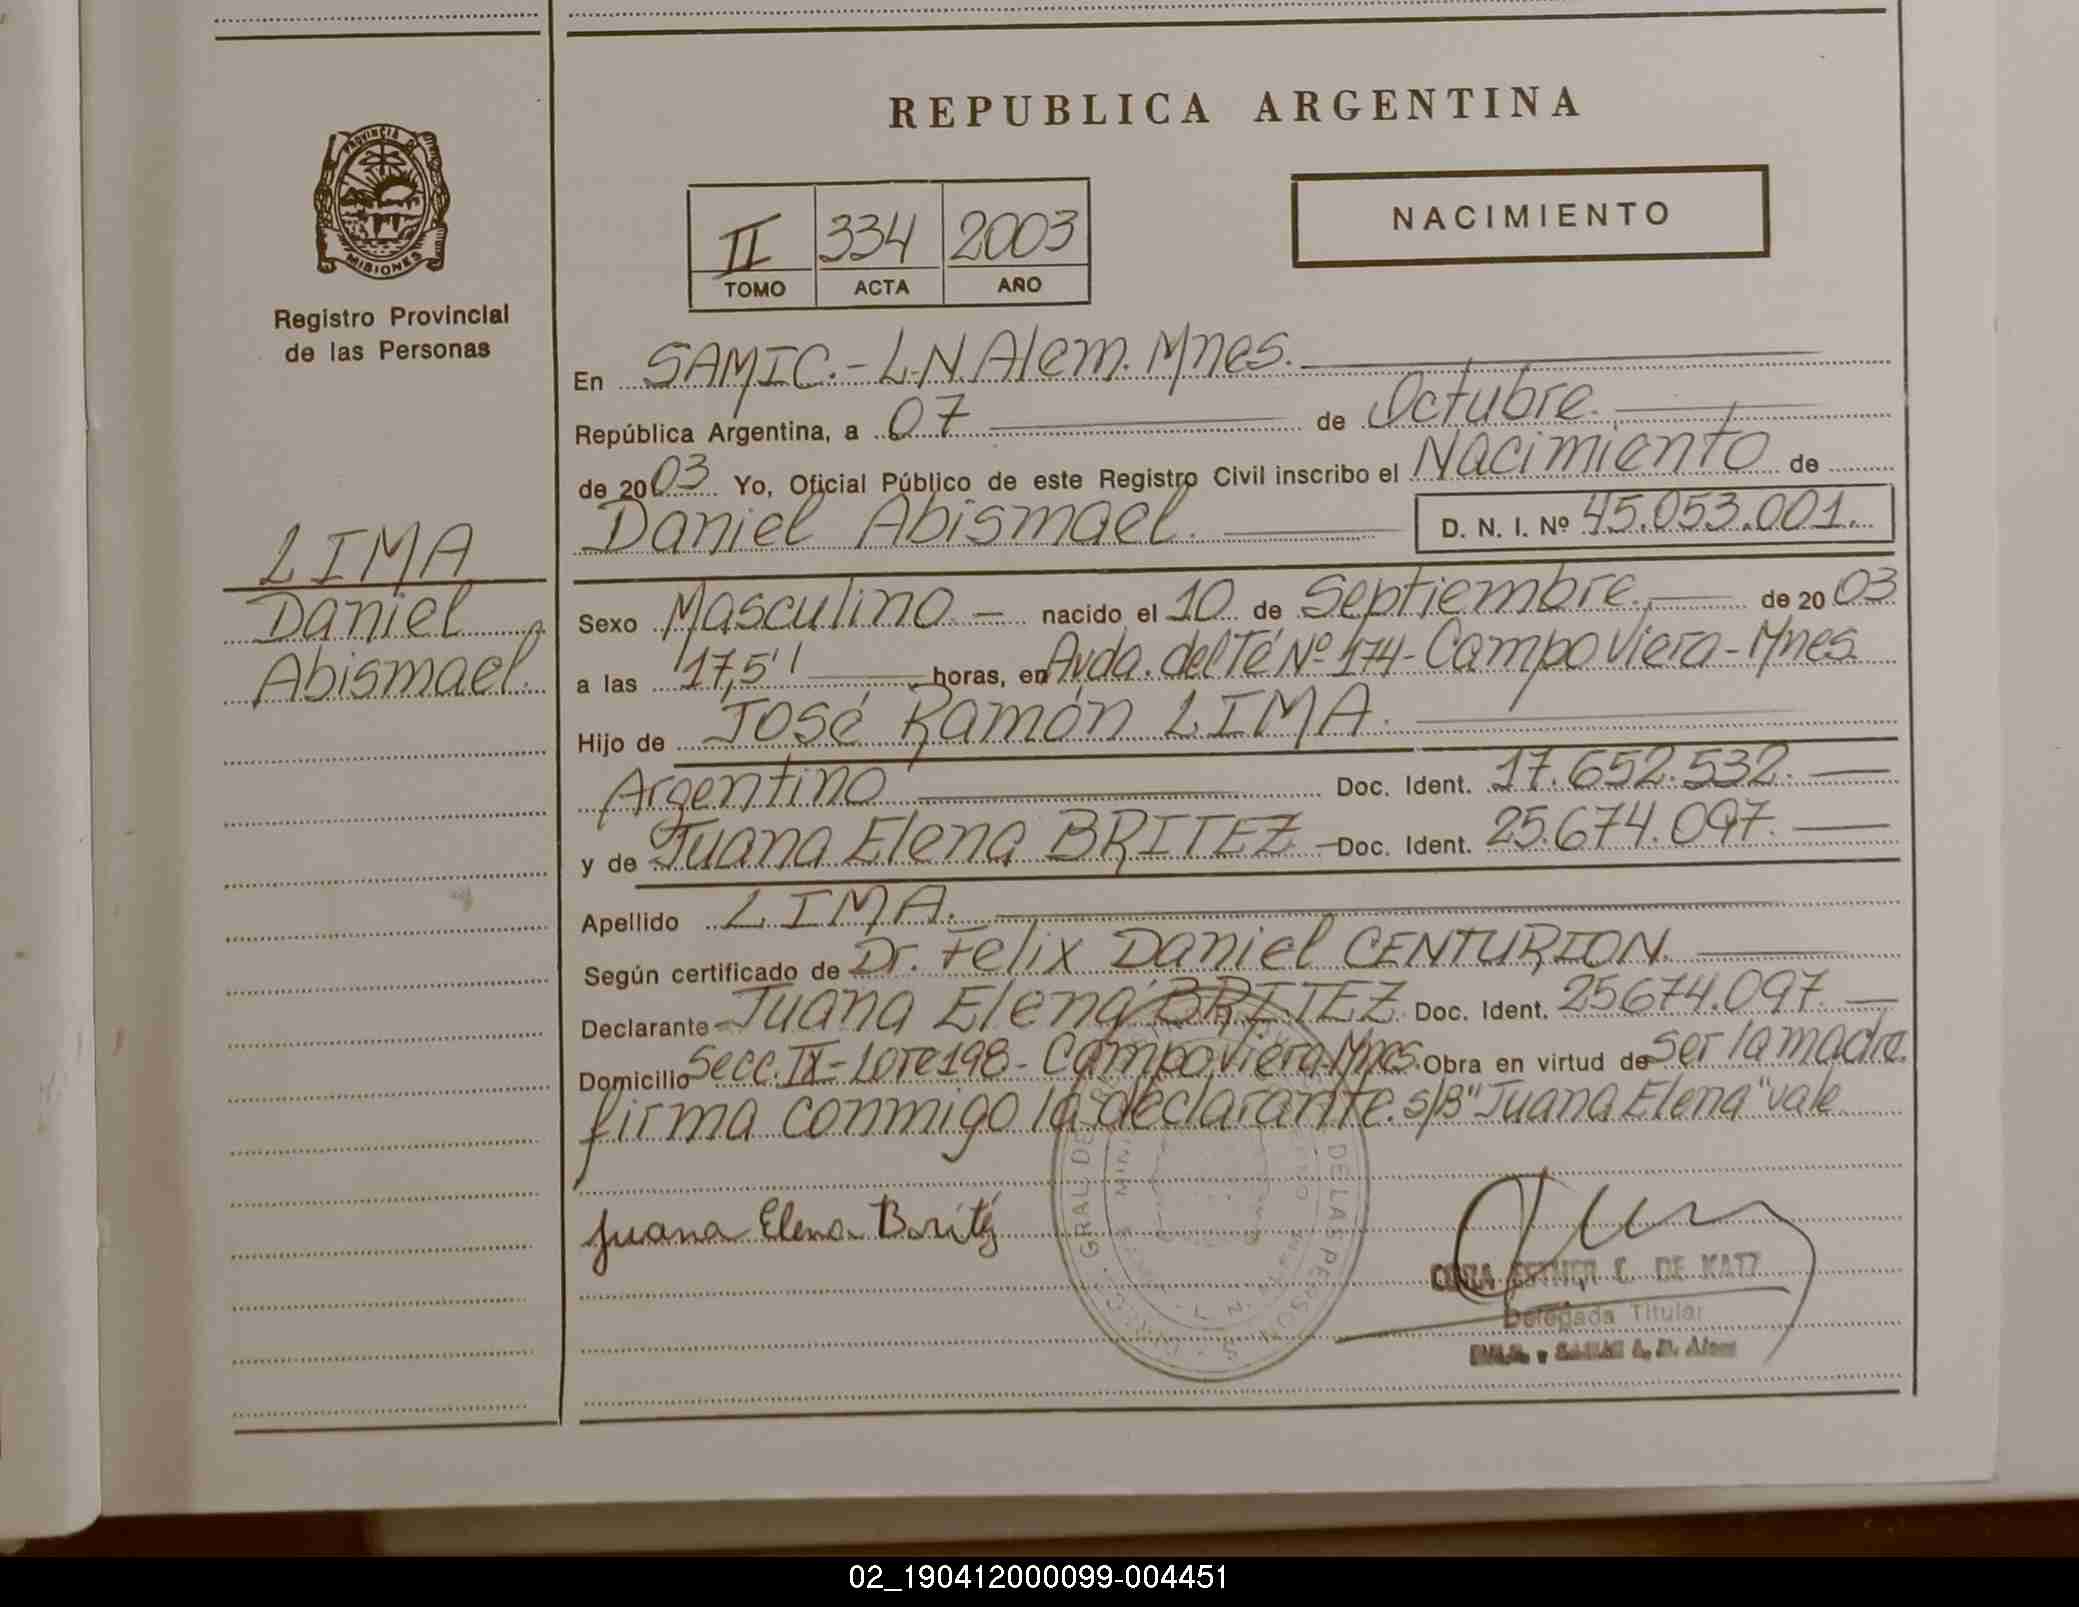 REPUBLICA ARGENTINA
PROVINCIA DE
MISIONES
Registro Provincial
de las Personas
NACIMIENTO
II 334 2003
TOMO ACTA AÑO
En SAMIC.- L.N.Alem. Mnes.
República Argentina, a 07 de Octubre.
de 2003 Yo, Oficial Público de este Registro Civil inscribo el Nacimiento de
Daniel Abismael. D. N. I. Nº 45.053.001.
LIMA
Daniel
Abismael.
Sexo Masculino - nacido el 10 de Septiembre. de 2003
a las 17,5' horas, en Avda. del Té Nº 174- Campo Viera - Mnes.
Hijo de José Ramón LIMA.
Argentino Doc. Ident. 17.652.532.
y de Juana Elena BRITEZ - Doc. Ident. 25.674.097.
Apellido LIMA.
Según certificado de Dr. Felix Daniel CENTURION.
Declarante Juana Elena BRITEZ Doc. Ident. 25674.097.
Domicilio Secc. IX - Lote 198 - Campo Viera Mnes. Obra en virtud de ser la madre.
firma conmigo la declarante. s/B "Juana Elena" vale
Juana Elena Britez
ESTHER C. DE KATZ
Delegada Titular
GRAL DE DE LAS PERSONAS
02_190412000099-004451